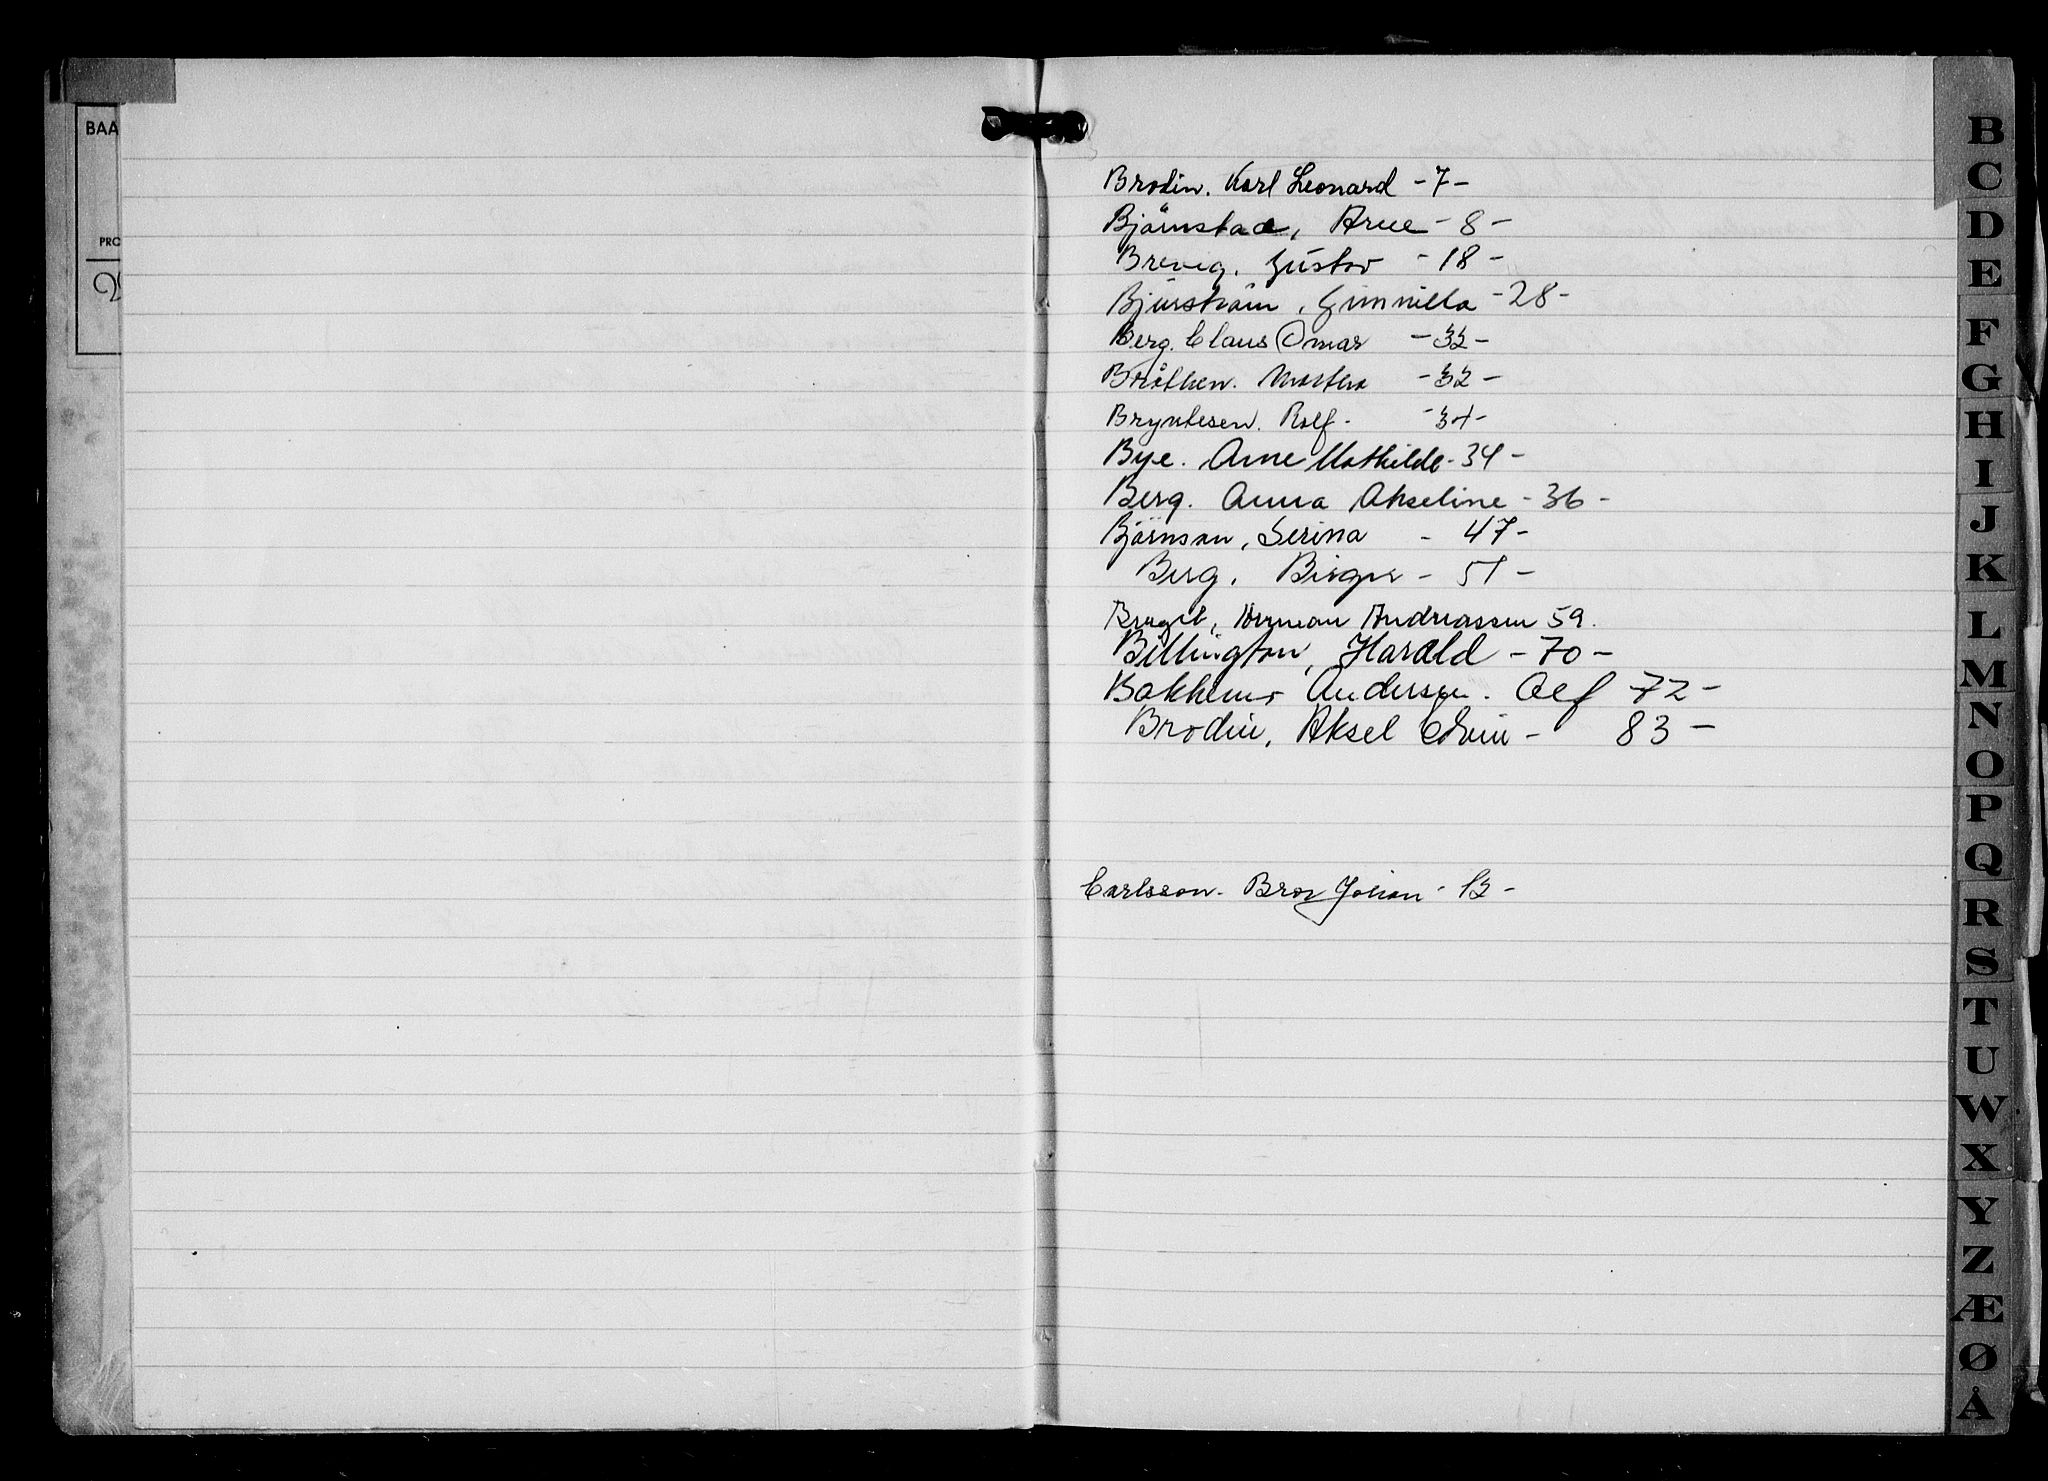 BAA
PRO
Brodin. Karl Leonard - 7 -
Björnstad, Arne - 8 -
Brevig. Gustav - 18 -
Björström, Gunnilla - 28 -
Berg. Claus Omar - 32 -
Bråthen. Martha - 32 -
Bryntesen. Rolf. - 34 -
Bye. Arne Mathilde - 34 -
Berg. Anna Akseline - 36 -
Björnson, Serina - 47 -
Berg, Birger - 51 -
Herman Andreassen 59.
Billington, Harald - 70 -
Bakkens Andersen. Alf - 72 -
Brodin, Aksel Edvin - 83 -
Carlsson. Bror Johan - 13 -
B
C
D
E
F
G
H
I
J
K
L
M
N
O
P
Q
R
S
T
U
W
X
Y
Z
Æ
Ø
Å